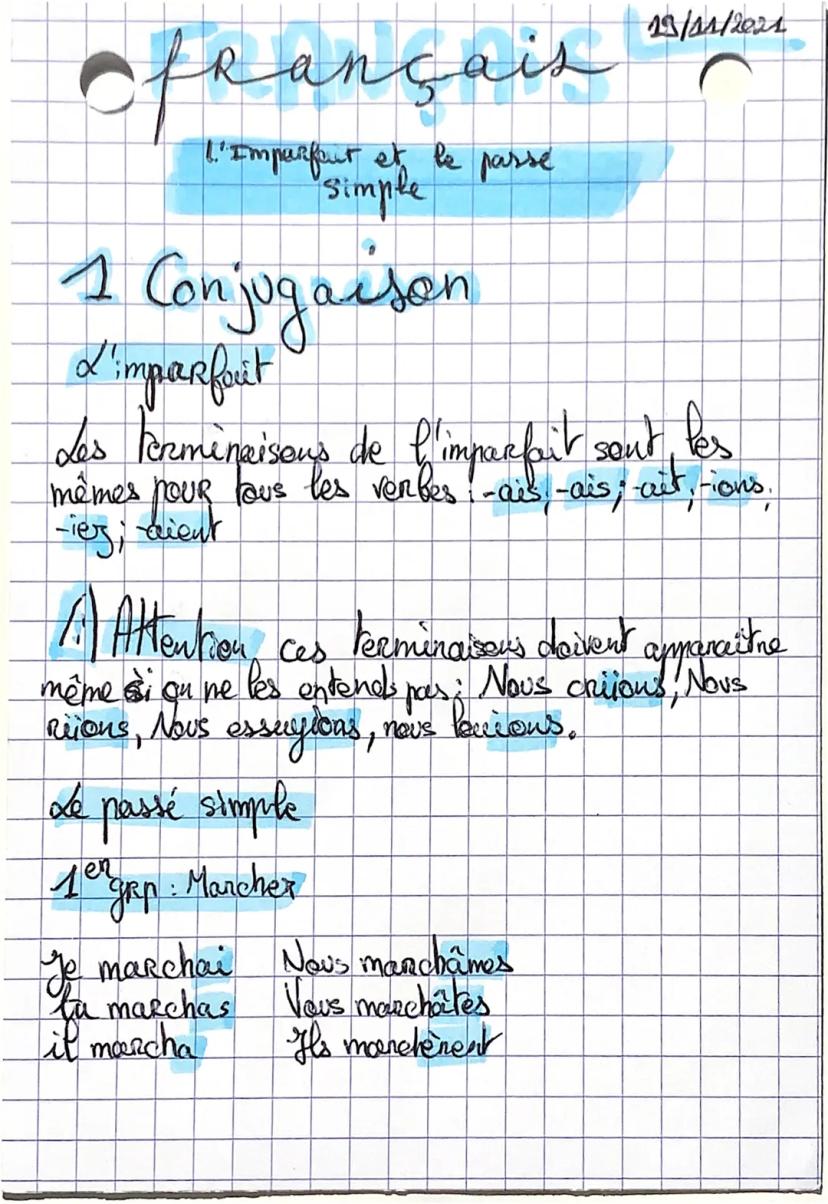 19/11/2021
FRANÇAIS
français
L'Imparfait et le passé
simple
1 Conjugaison
L'imparfait
Les terminaisons de l'imparfait sont les
mêmes pour tous les verbes : -ais, -ais; -ait; -ions;
-iez; -aient
(!) Attention ces terminaisons doivent apparaitre
même si on ne les entends pas : Nous criions, Nous
riions, Nous essuyions, nous
Le passé simple
1er grp : Marcher
Je marchai Nous marchâmes
tu marchas Vous marchâtes
il marcha Ils marchèrent